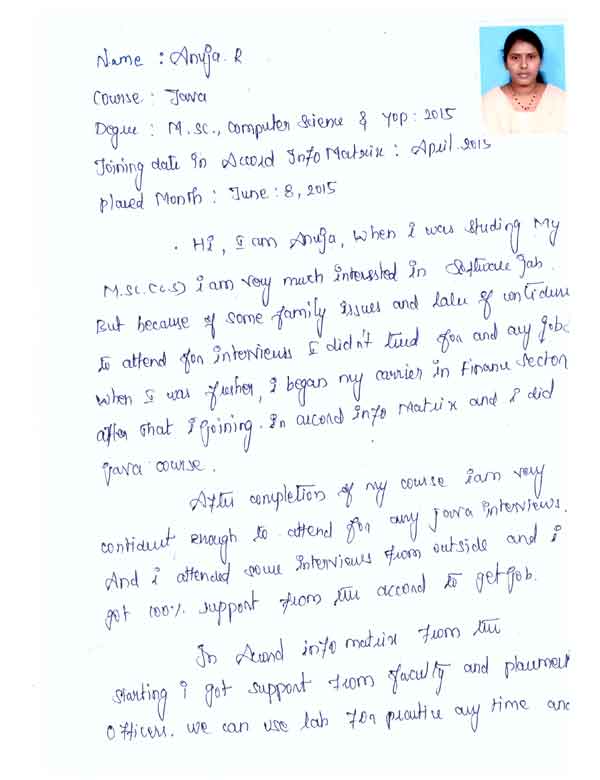 Name : Anuja. R
Course : Java
Degree : M.SC., Computer Science & YOP : 2015
Joining date in Accord Info Matrix : April 2015
Placed Month : June : 8, 2015
Hi, I am Anuja, when i was studing My
M.SC.(C.S) i am very much interested in Software Job.
But because of some family issues and lake of confidence
to attend for interviews I didn't tried for and any jobs
when I was fresher, i began my carrier in Finance Sector
after that i joining. In accord info Matrix and i did
java course.
After completion of my course i am very
confident enough to attend for any java interviews.
And i attended some interviews from outside and i
got 100% support from the accord to get job.
In Accord info matrix from the
starting i got support from faculty and placement
officers. we can use lab for practice any time and